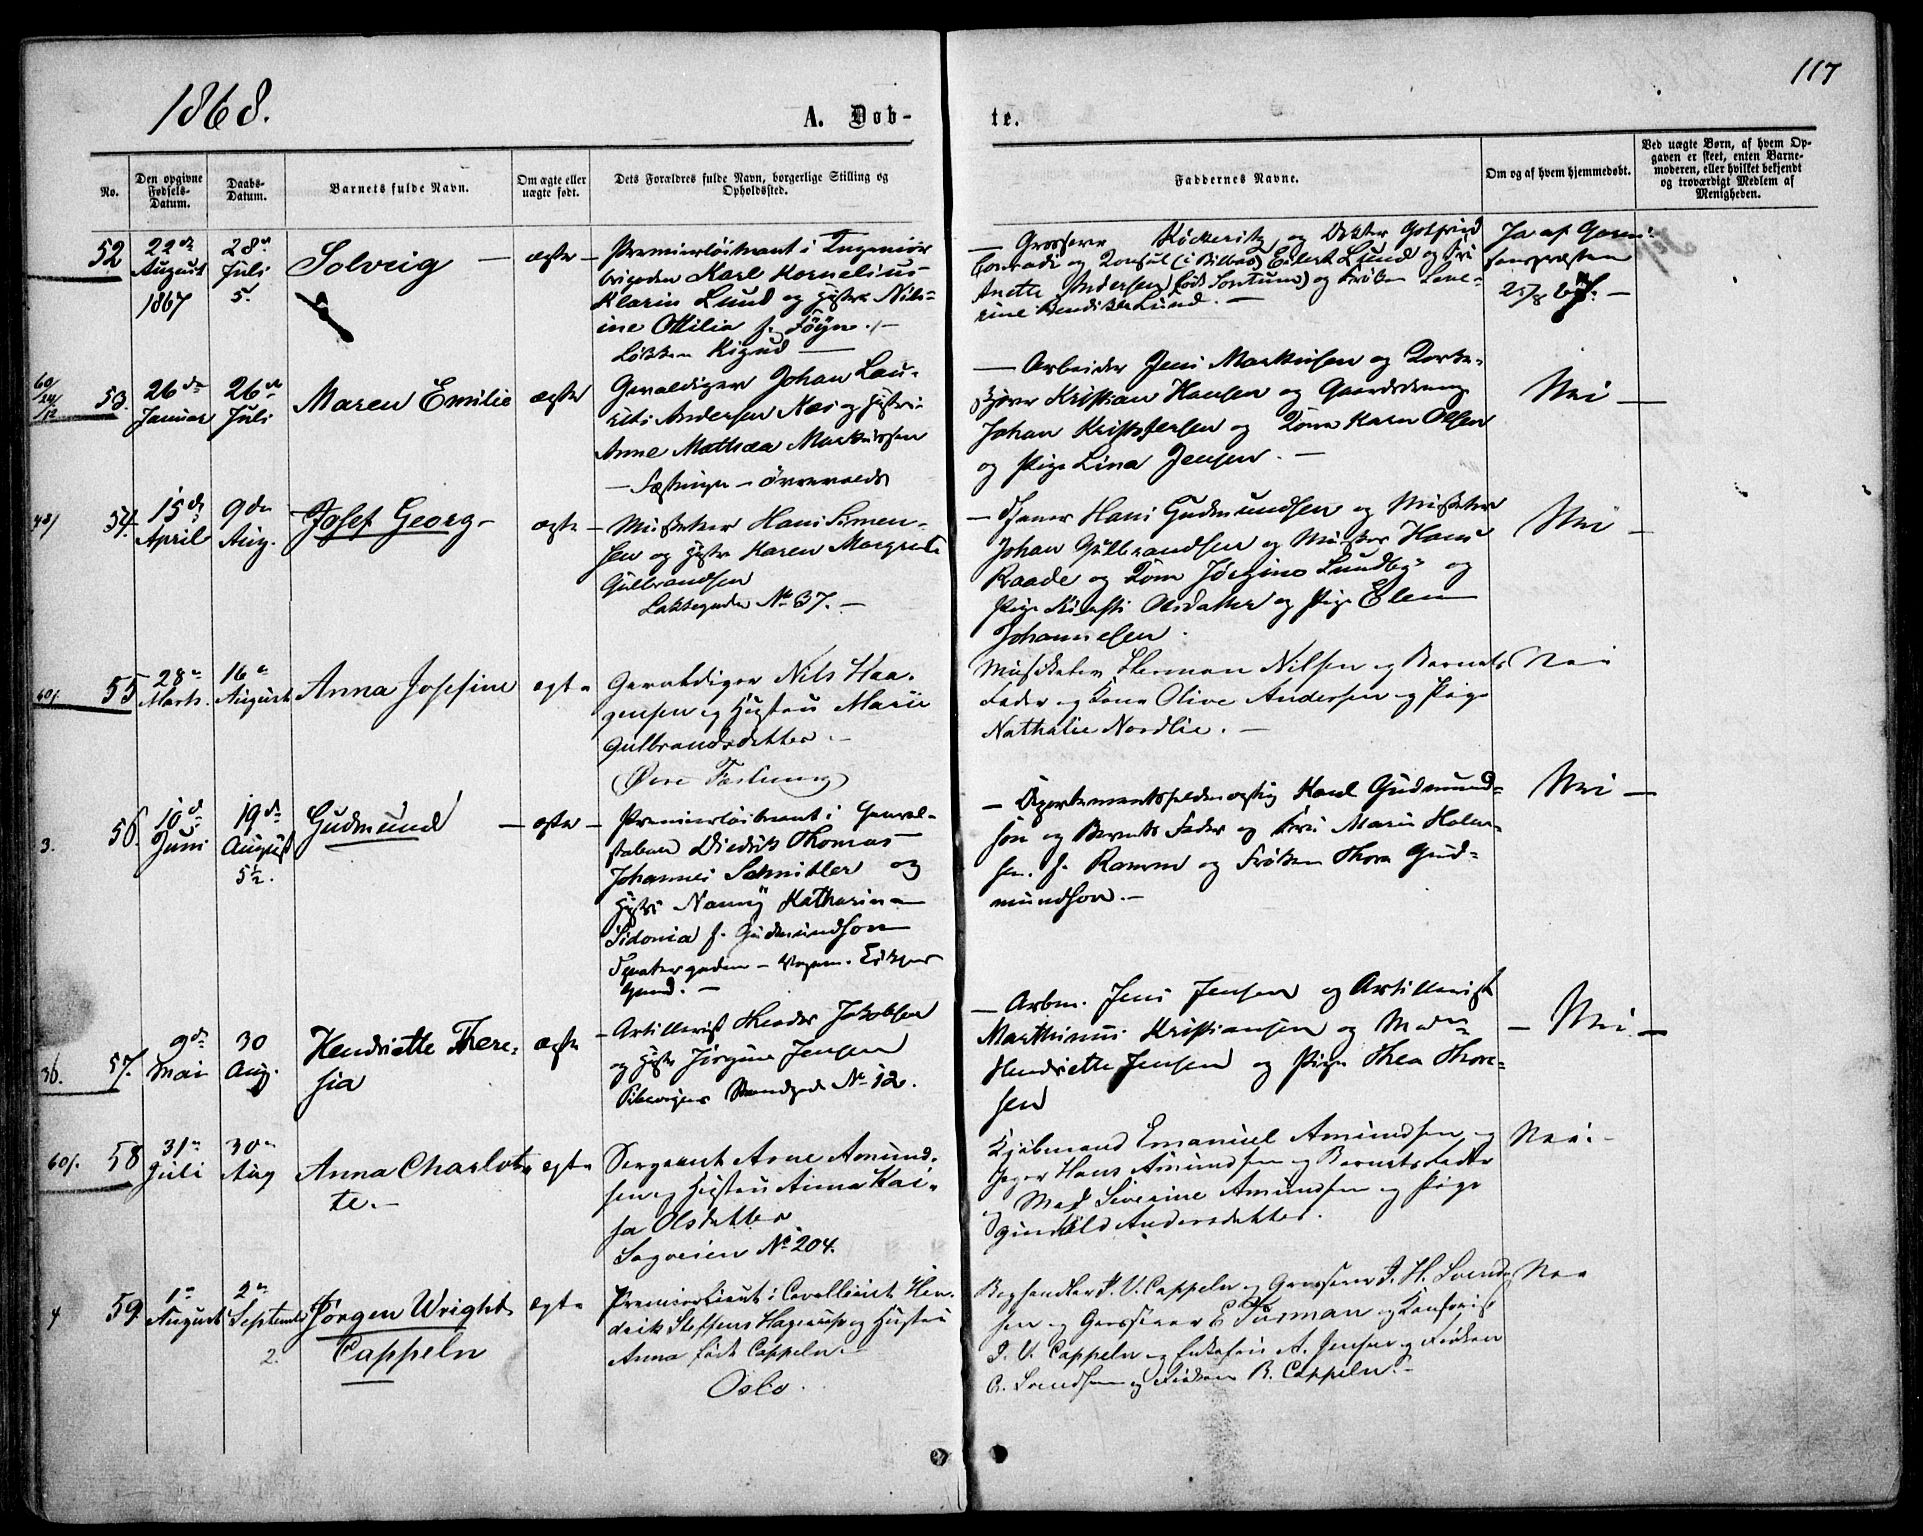 1868.
A. Døb-
te.
117
No.
Den opgivne Fødsels-Datum.
Daabs-Datum.
Barnets fulde Navn.
Om ægte eller uægte født.
Dets Forældres fulde Navn, borgerlige Stilling og Opholdssted.
Faddernes Navne.
Om og af hvem hjemmedøbt.
Ved uægte Børn, af hvem Op-
gaven er skeet, enten Barne-
moderen, eller hvilket bekjendt
og troværdigt Medlem af
Menigheden.
52
22de August 1867
28de Juli 5.
Solveig
ægte
Premierløitnant i Ingeniør
brigaden Karl Kornelius
Klarius Lund og Hustru Nils-
ine Ottilia f. Föyn
Løkken
Grosserer Köckeritz og Doktor Gotfried
Conradi og Konsul (i Bilbao) Eilert Lund og Fru
Anette Andersen (født Sontum) og Frøken Seve-
rine Bendikte Lund.
Ja af Garni-
sonspræsten
25/8 67.
60/ 24/ 12
53.
26de Januar
26de Juli
Maren Emilie
ægte
Gevaldiger Johan Lau-
rits Andersen Næs og Hustru
Anne Mathea Markussen
Fæstningen
Arbeider Jens Markusen og
Kristian Hansen og Gaardsdreng
Johan Kristofersen og Kone Karen Olsen
og Pige Lina Jensen.
Nei
48/
54.
15de April
9de Aug.
Josef Georg
ægte
Musketer Hans Simen-
sen og Hustru Karen Margrete
Gulbrandsen
Lakkegaden No 37.
Hans Gudmundsen og Musketer
Johan Gulbrandsen og Hans
Raade og Kone Jørgine Lundby og
Pige Kirsti Olsdatter og Pige Elen
Johannesen.
Nei
60/.
55
28de Marts.
16de August
Anna Josefine
ægte
Gevaldiger Nils Haa-
gensen og Hustru Marie
Gulbrandsdatter.
(Øvre Fæstning)
Musketer Herman Nilsen og Barnets
Fader og Kone Olive Andersen og Pige
Nathalie Nordlie.
Nei
3.
56.
10de Juni
19de August 5½.
Gudmund
ægte
Premierløitnant i General-
staben Diedrik Thomas
Johannes Schnitler og
Hustru Nanny Katharina
Sidonia f. Gudmundson
Departementsfuldmægtig Karl Gudmund-
son og Barnets Fader og Fru Marie Holm-
sen f. Ramm og Frøken Thora Gud-
mundson.
Nei
36.
57.
9de Mai
30 Aug.
Henriette There-
sia
ægte
Artillerist Theodor Jakobsen
og Hustru Jørgine Jensen
Pibervigens Strandgade No 12.
Arbm. Jens Jensen og Artillerist
Marthinus Kristiansen og Mad.
Henriette Jensen og Pige Thea Thore-
sen
Nei
60/.
58
31te Juli
30te Aug
Anna Charlot-
te.
ægte
Sergeant Arne Amund-
sen og Hustru Anna Kai-
sa Olsdatter
Sagveien No 204.
Kjøbmand Emanuel Amundsen og
Jæger Hans Amundsen og Barnets Fader
og Mad Severine Amundsen og Pige
Gunild Andersdatter.
Nei.
4
59.
1te August
2de Septembr 2.
Jörgen Wright
Cappeln
ægte
Premierlieut: i Cavalleriet Hen-
drik Steffens Hagerup og Hustru
Anna født Cappeln.
Oslo.
Boghandler J. V. Cappeln og Grosserer J. H. Svend-
sen og Grosserer E. Furman og
J. V. Cappeln og A. Jensen og Frøken
C. Svendsen og Frøken B. Cappeln.
Nei